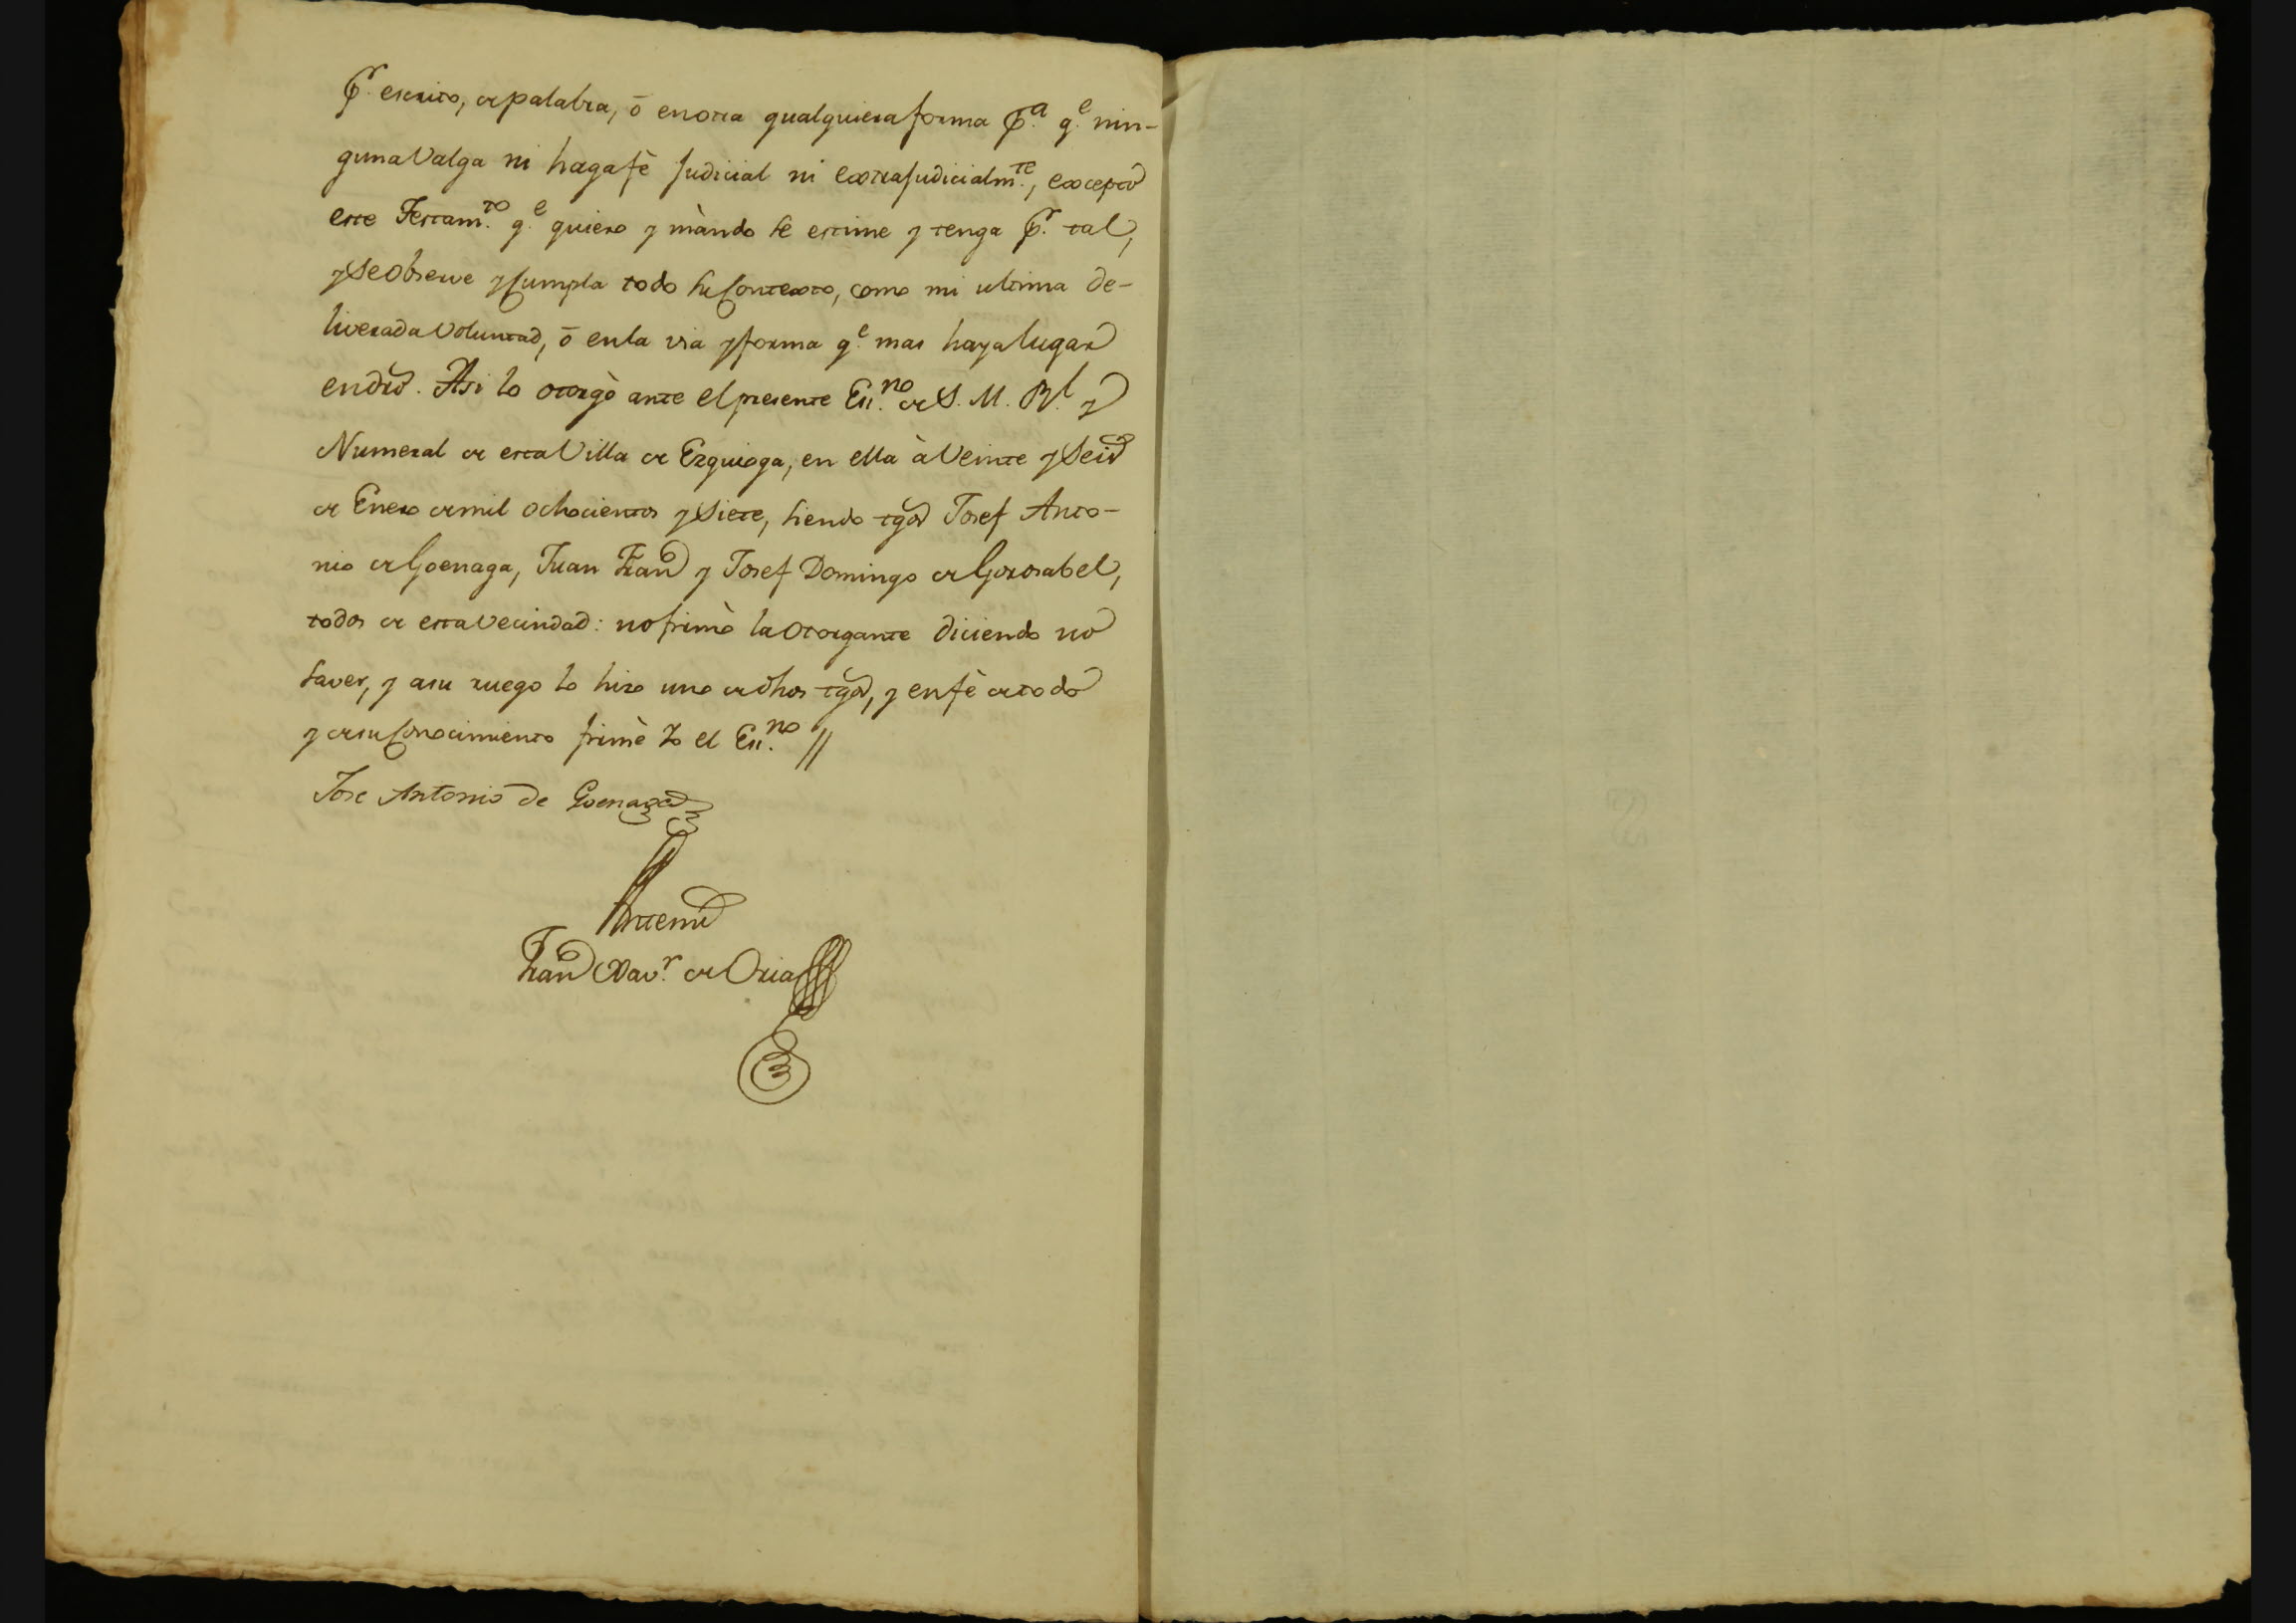 Pr. escrito, de palabra, ó en otra qualquiera forma pa. qe. nin-
guna Valga ni haga fè Judicial ni extraJudicialmte., excepto
este Testamto. qe. quiero y màndo se estime y tenga pr. tal,
y se observe y Cumpla todo su Contexto, como mi ultima de-
liverada Voluntad, ó en la via y forma qe. mas haya lugar
en dro. Asi lo otorgò ante el presente Essno. de S. M. Rl. y
Numeral de esta Villa de Ezquioga, en ella à Veinte y Seis
de Enero de mil ochocientos y Siete, siendo tgos Josef Anto-
nio de Goenaga, Juan Franco y Josef Domingo de Gorosabel,
todos de esta Vecindad: no firmò la Otorgante diciendo no
saver, y a su ruego lo hizo uno de dhos tgos, y en fè de todo
y de su Conocimiento firmè Yo el Essno. //
Jose Antonio de Goenaga
Ante mi
Franco Xavr. de Oria